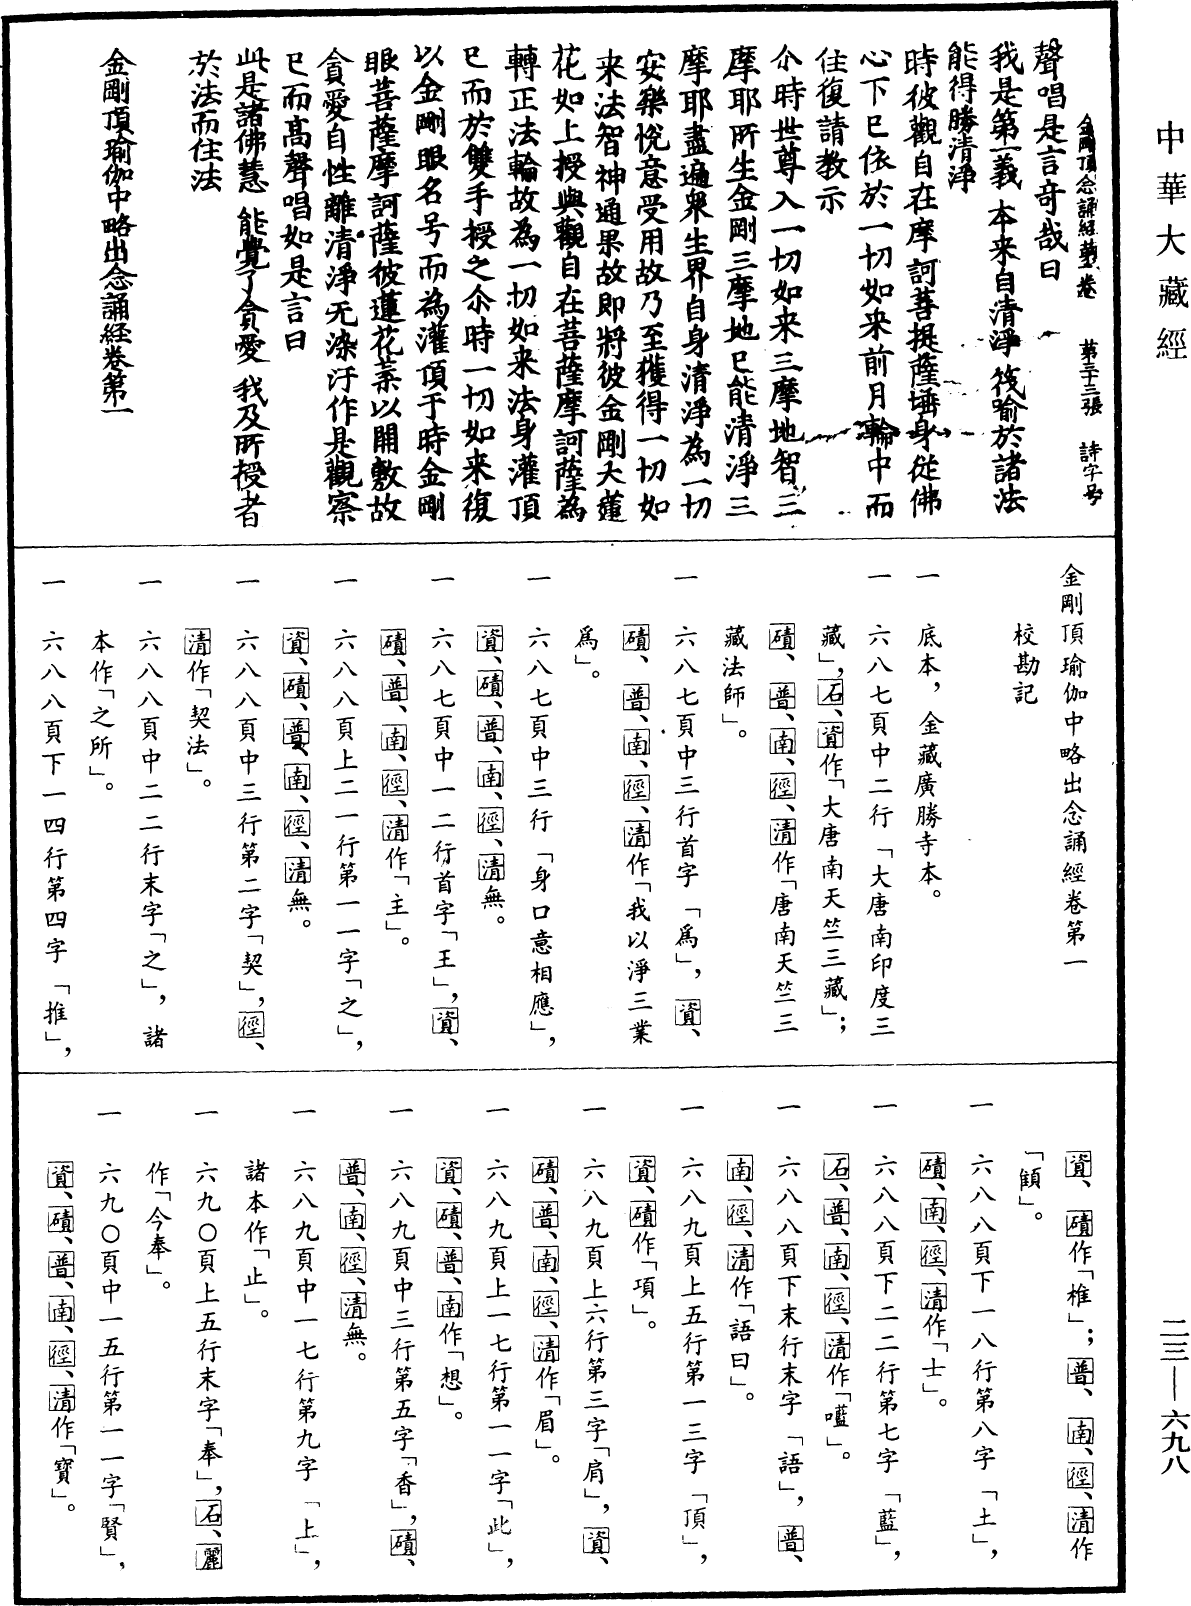 中華大藏經
金剛頂念誦經第一卷　第三十三張　詩字号
聲唱是言奇哉曰
我是第一義　本来自清淨　筏喻於諸法
能得勝清淨
時彼觀自在摩訶菩提薩埵身從佛
心下已依於一切如来前月輪中而
住復請教示
尒時世尊入一切如来三摩地智三
摩耶所生金剛三摩地已能清淨三
摩耶盡遍衆生界自身清淨為一切
安樂悅意受用故乃至獲得一切如
来法智神通果故即將彼金剛大蓮
花如上授與觀自在菩薩摩訶薩為
轉正法輪故為一切如来法身灌頂
已而於雙手授之尒時一切如来復
以金剛眼名号而為灌頂于時金剛
眼菩薩摩訶薩彼蓮花葉以開敷故
貪愛自性離清淨无染汙作是觀察
已而高聲唱如是言曰
此是諸佛慧　能覺了貪愛　我及所授者
於法而住法
金剛頂瑜伽中略出念誦經卷第一
金剛頂瑜伽中略出念誦經卷第一
校勘記
一　底本，金藏廣勝寺本。
一　六八七頁中二行「大唐南印度三
藏」，石、資作「大唐南天竺三藏」；
磧、普、南、徑、清作「唐南天竺三
藏法師」。
一　六八七頁中三行首字「爲」，資、
磧、普、南、徑、清作「我以淨三業
爲」。
一　六八七頁中三行「身口意相應」，
資、磧、普、南、徑、清無。
一　六八七頁中一二行首字「王」，資、
磧、普、南、徑、清作「主」。
一　六八八頁上二一行第一一字「之」，
資、磧、普、南、徑、清無。
一　六八八頁中三行第二字「契」，徑、
清作「契法」。
一　六八八頁中二二行末字「之」，諸
本作「之所」。
一　六八八頁下一四行第四字「推」，
資、磧作「椎」；普、南、徑、清作
「頧」。
一　六八八頁下一八行第八字「土」，
磧、南、徑、清作「士」。
一　六八八頁下二二行第七字「藍」，
石、普、南、徑、清作「㘕」。
一　六八八頁下末行末字「語」，普、
南、徑、清作「語曰」。
一　六八九頁上五行第一三字「頂」，
資、磧作「項」。
一　六八九頁上六行第三字「肩」，資、
磧、普、南、徑、清作「眉」。
一　六八九頁上一七行第一一字「此」，
資、磧、普、南作「想」。
一　六八九頁中三行第五字「香」，磧、
普、南、徑、清無。
一　六八九頁中一七行第九字「上」，
諸本作「止」。
一　六九〇頁上五行末字「奉」，石、麗
作「今奉」。
一　六九〇頁中一五行第一一字「賢」，
資、磧、普、南、徑、清作「寶」。
二三—六九八